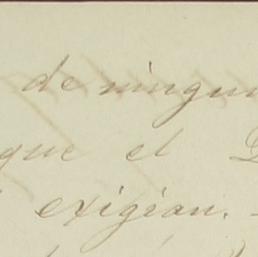 de ningun
que el
exigian.